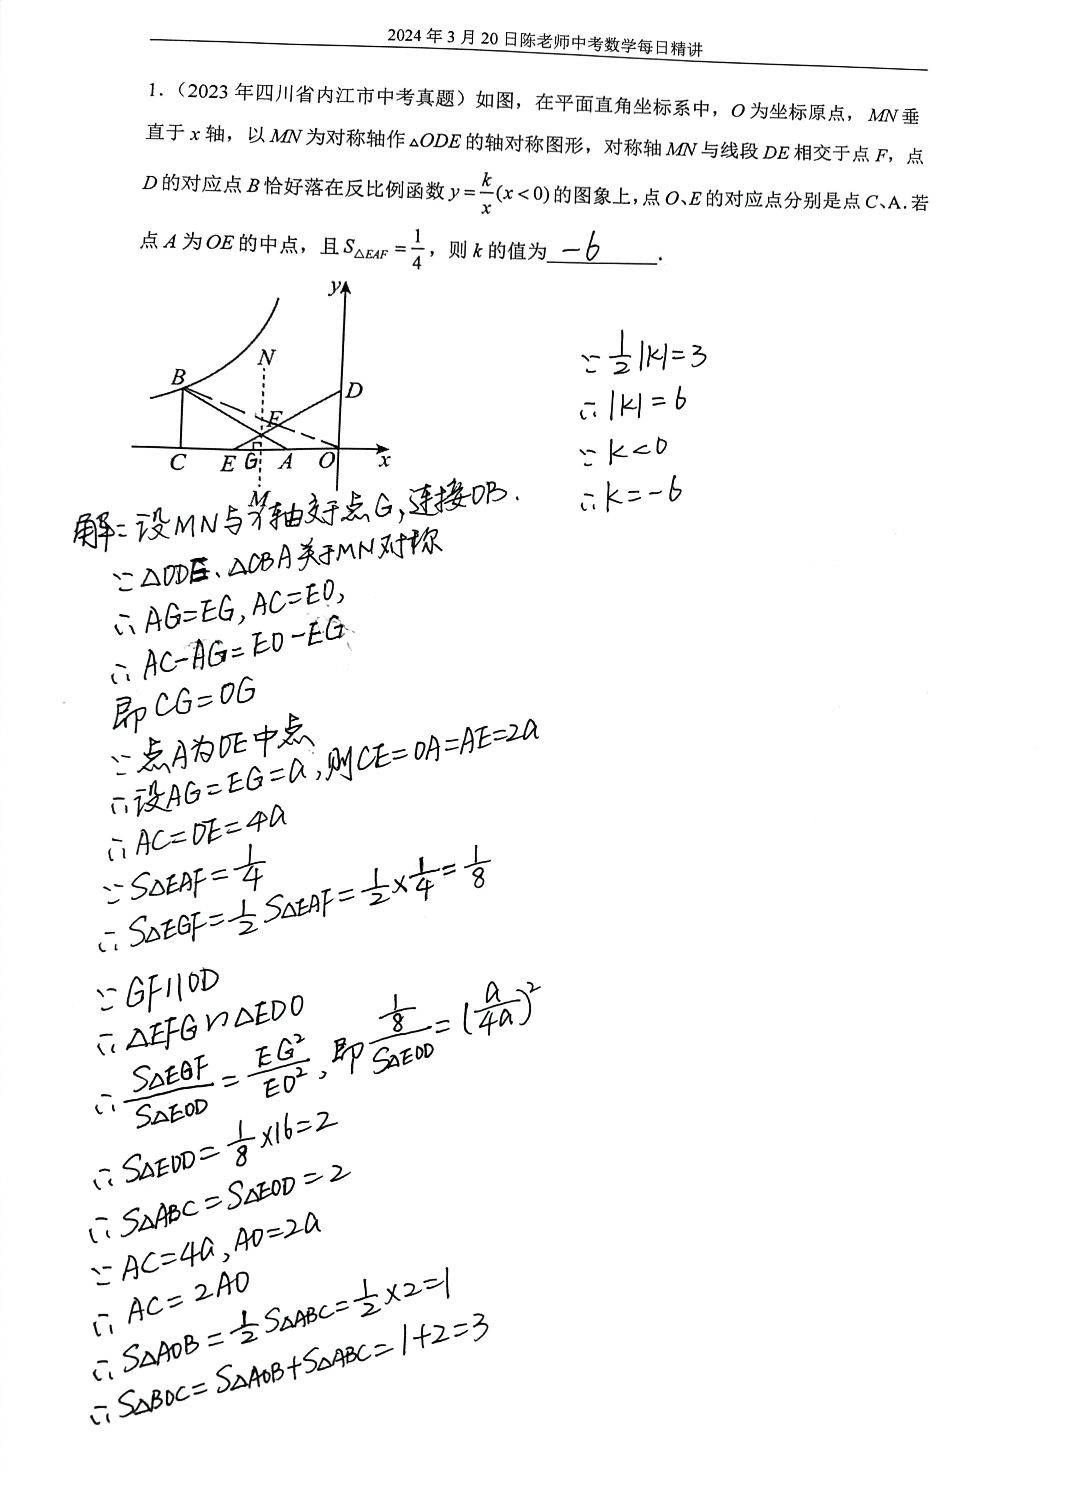 2024 年 3 月 20 日陈老师中考数学每日精讲
1.（2023 年四川省内江市中考真题）如图，在平面直角坐标系中，O 为坐标原点，MN 垂
直于 x 轴，以 MN 为对称轴作 △ODE 的轴对称图形，对称轴 MN 与线段 DE 相交于点 F，点
D 的对应点 B 恰好落在反比例函数 y=k/x(x<0)的图象上，点 O、E 的对应点分别是点 C、A. 若
点 A 为 OE 的中点，且 S△EAF=1/4，则 k 的值为 -6 .
y
N
B
D
F
C E G A O x
M
∵ 1/2|k|=3
∴ |k|=6
∵ k<0
∴ k=-6
解：设MN与x轴交于点G，连接OB.
∵ △ODE、△CBA关于MN对称
∴ AG=EG, AC=EO,
∴ AC-AG=EO-EG
即 CG=OG
∵ 点A为OE中点
∴ 设AG=EG=a，则CE=OA=AE=2a
∴ AC=OE=4a
∵ S△EAF=1/4
∴ S△EGF=1/2 S△EAF=1/2×1/4=1/8
∵ GF∥OD
∴ △EFG∽△EDO
∴ S△EGF/S△EOD=EG²/EO²，即 (1/8)/S△EOD=(a/4a)²
∴ S△EOD=1/8×16=2
∴ S△ABC=S△EOD=2
∵ AC=4a, AO=2a
∴ AC=2AO
∴ S△AOB=1/2 S△ABC=1/2×2=1
∴ S△BOC=S△AOB+S△ABC=1+2=3